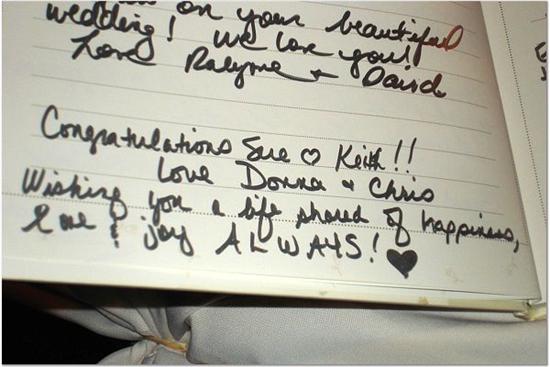 on your beautiful
wedding! We love you!
Love Ralyne + David
Congratulations Sue ♡ Keith!!
Love Donna + Chris
Wishing you a life shared of happiness,
love & joy ALWAYS! ♥